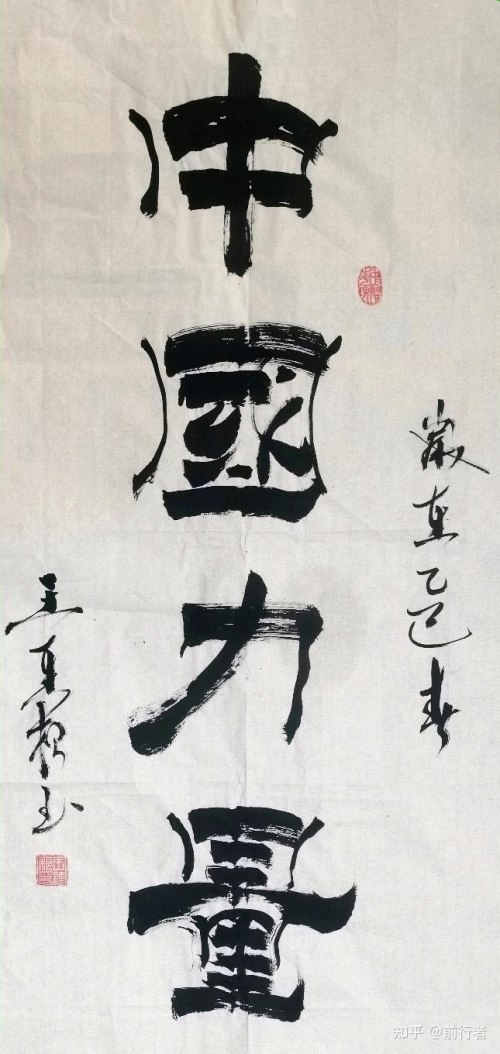 中國力量
歲在乙巳春
王
知乎 @前行者